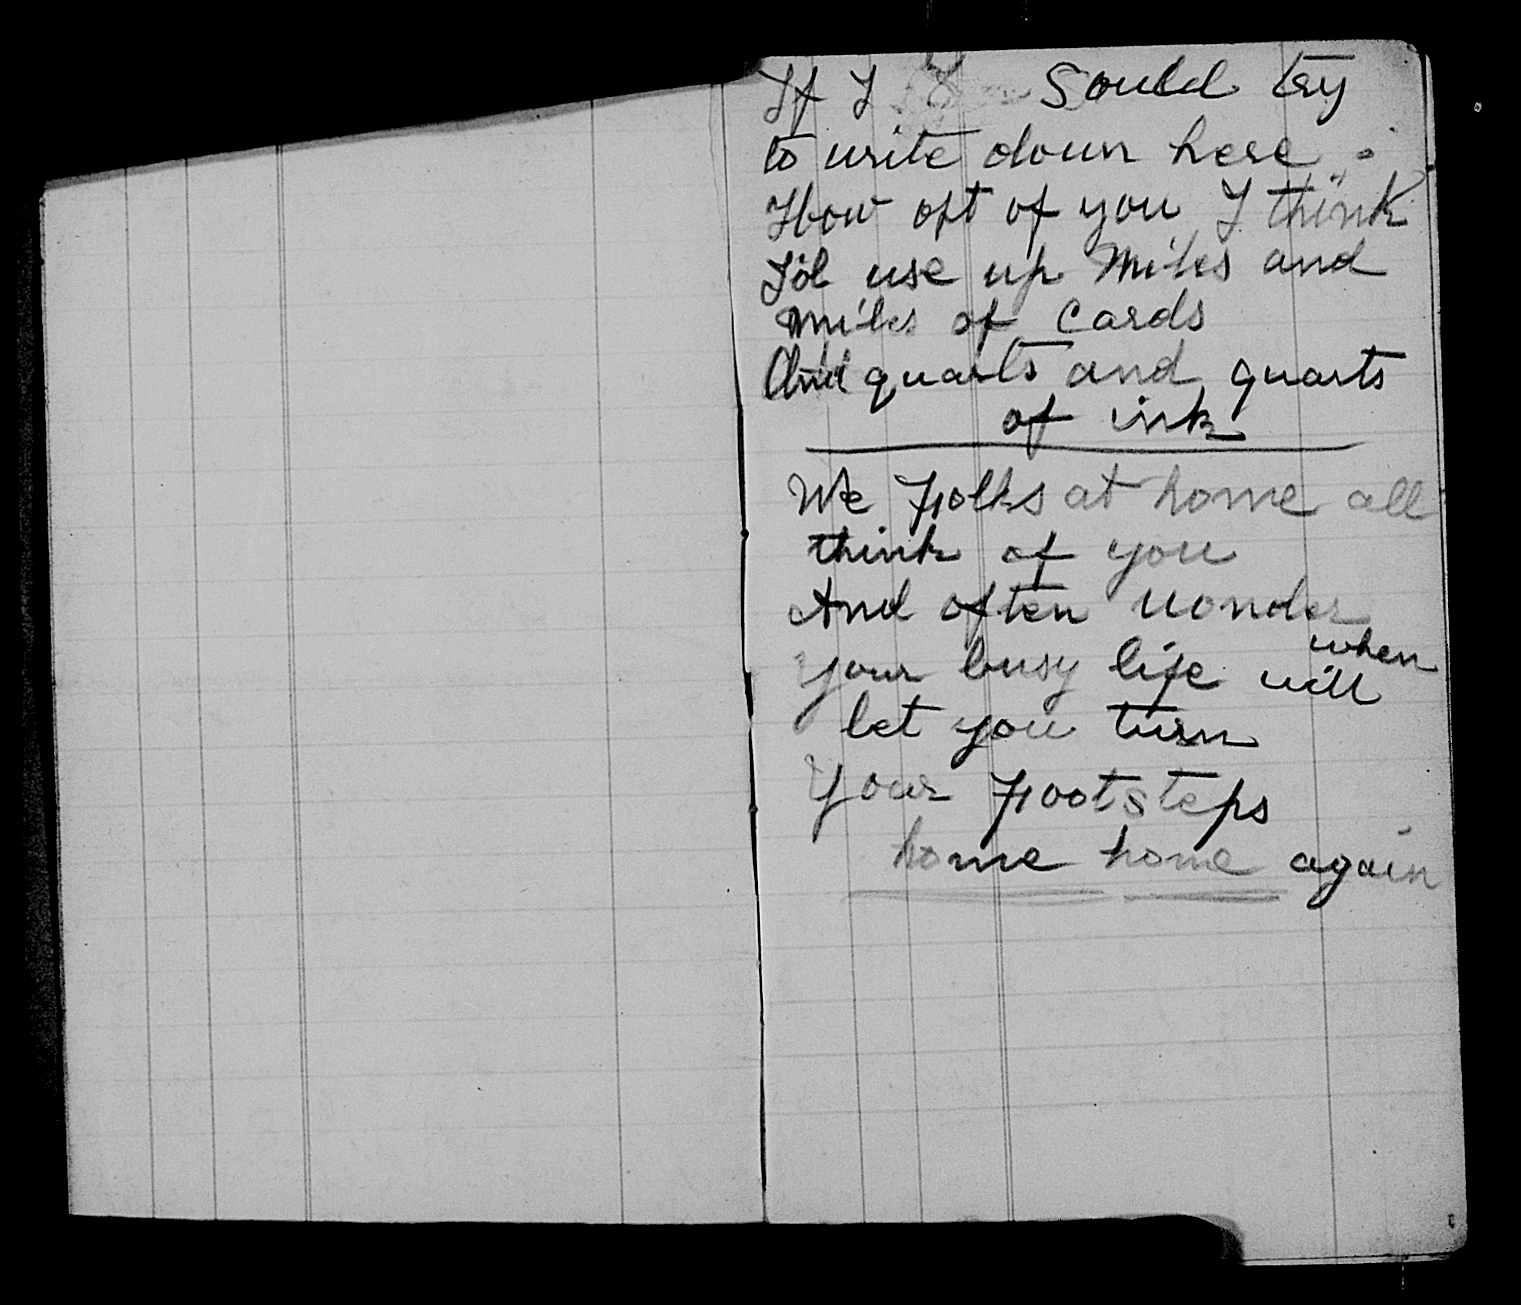 If I Sould try
to write down here
How oft of you I think
I'd use up miles and
miles of cards
And quarts and quarts
of ink
We Folks at home all
think of you
And often wonder
when
Your busy life will
let you turn
Your Footsteps
home home again